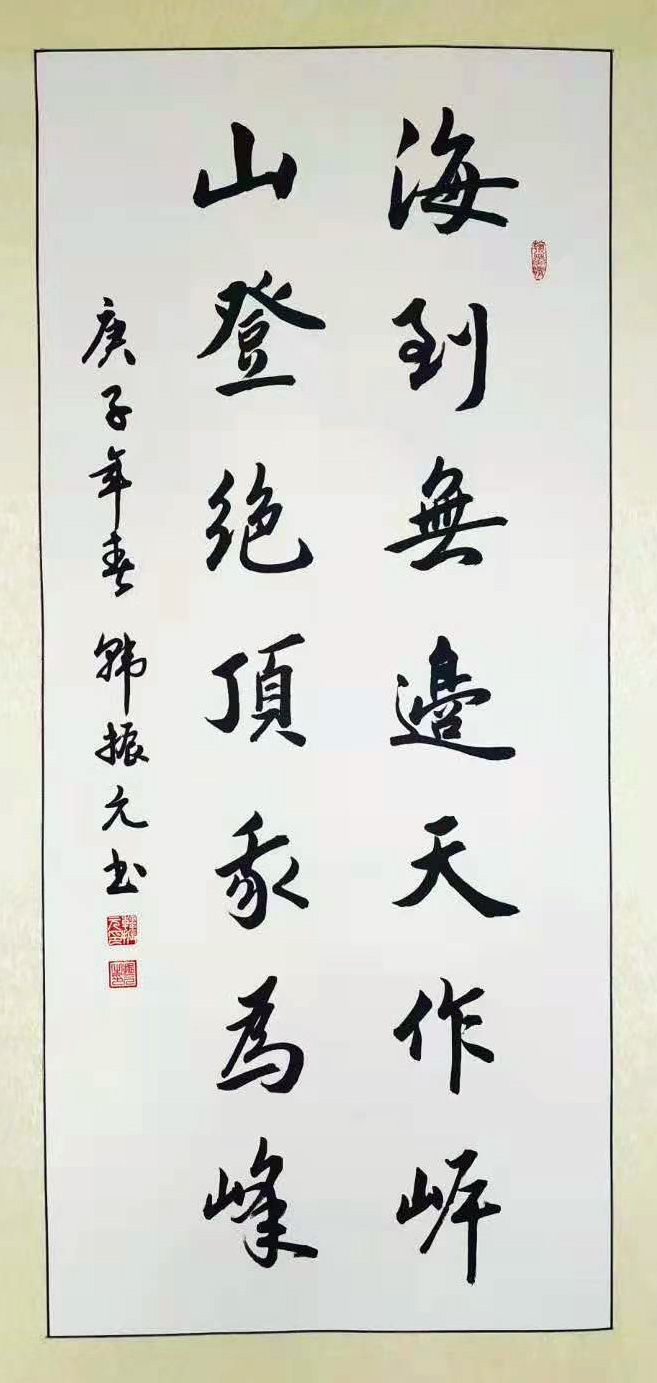 海到無邊天作岸
山登絕頂我為峰
庚子年春 韩振元书